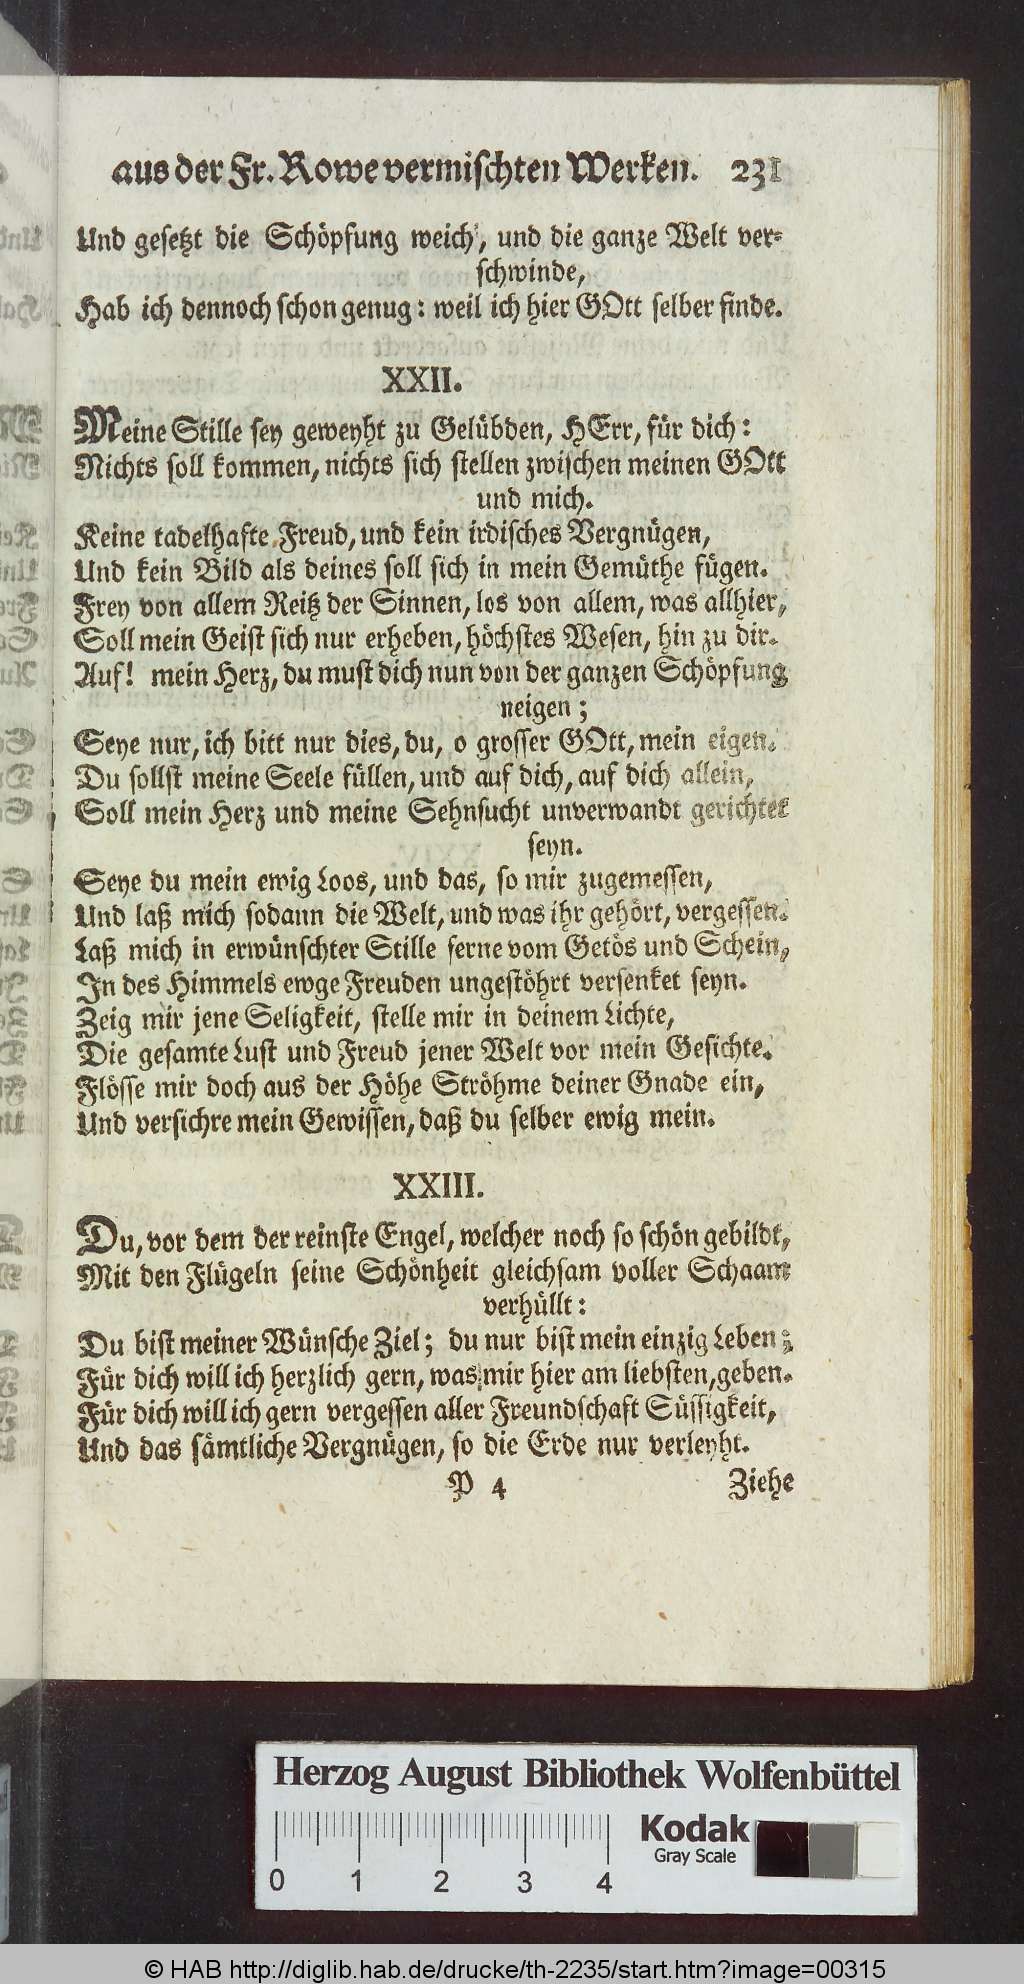 aus der Fr. Rowe vermischten Werken. 231
Und gesetzt die Schöpfung weich', und die ganze Welt ver-
schwinde,
Hab ich dennoch schon genug: weil ich hier GOtt selber finde.
XXII.
Meine Stille sey geweyht zu Gelübden, HErr, für dich:
Nichts soll kommen, nichts sich stellen zwischen meinen GOtt
und mich.
Keine tadelhafte Freud, und kein irdisches Vergnügen,
Und kein Bild als deines soll sich in mein Gemüthe fügen.
Frey von allem Reitz der Sinnen, los von allem, was allhier,
Soll mein Geist sich nur erheben, höchstes Wesen, hin zu dir.
Auf! mein Herz, du must dich nun von der ganzen Schöpfung
neigen;
Seye nur, ich bitt nur dies, du, o grosser GOtt, mein eigen.
Du sollst meine Seele füllen, und auf dich, auf dich allein,
Soll mein Herz und meine Sehnsucht unverwandt gerichtet
seyn.
Seye du mein ewig Loos, und das, so mir zugemessen,
Und laß mich sodann die Welt, und was ihr gehört, vergessen.
Laß mich in erwünschter Stille ferne vom Getös und Schein,
In des Himmels ewge Freuden ungestöhrt versenket seyn.
Zeig mir jene Seligkeit, stelle mir in deinem Lichte,
Die gesamte Lust und Freud jener Welt vor mein Gesichte.
Flösse mir doch aus der Höhe Ströhme deiner Gnade ein,
Und versichre mein Gewissen, daß du selber ewig mein.
XXIII.
Du, vor dem der reinste Engel, welcher noch so schön gebildt,
Mit den Flügeln seine Schönheit gleichsam voller Schaam
verhüllt:
Du bist meiner Wünsche Ziel; du nur bist mein einzig Leben;
Für dich will ich herzlich gern, was mir hier am liebsten, geben.
Für dich will ich gern vergessen aller Freundschaft Süssigkeit,
Und das sämtliche Vergnügen, so die Erde nur verleyht.
P 4 Ziehe
Herzog August Bibliothek Wolfenbüttel
Kodak
Gray Scale
0 1 2 3 4
© HAB http://diglib.hab.de/drucke/th-2235/start.htm?image=00315